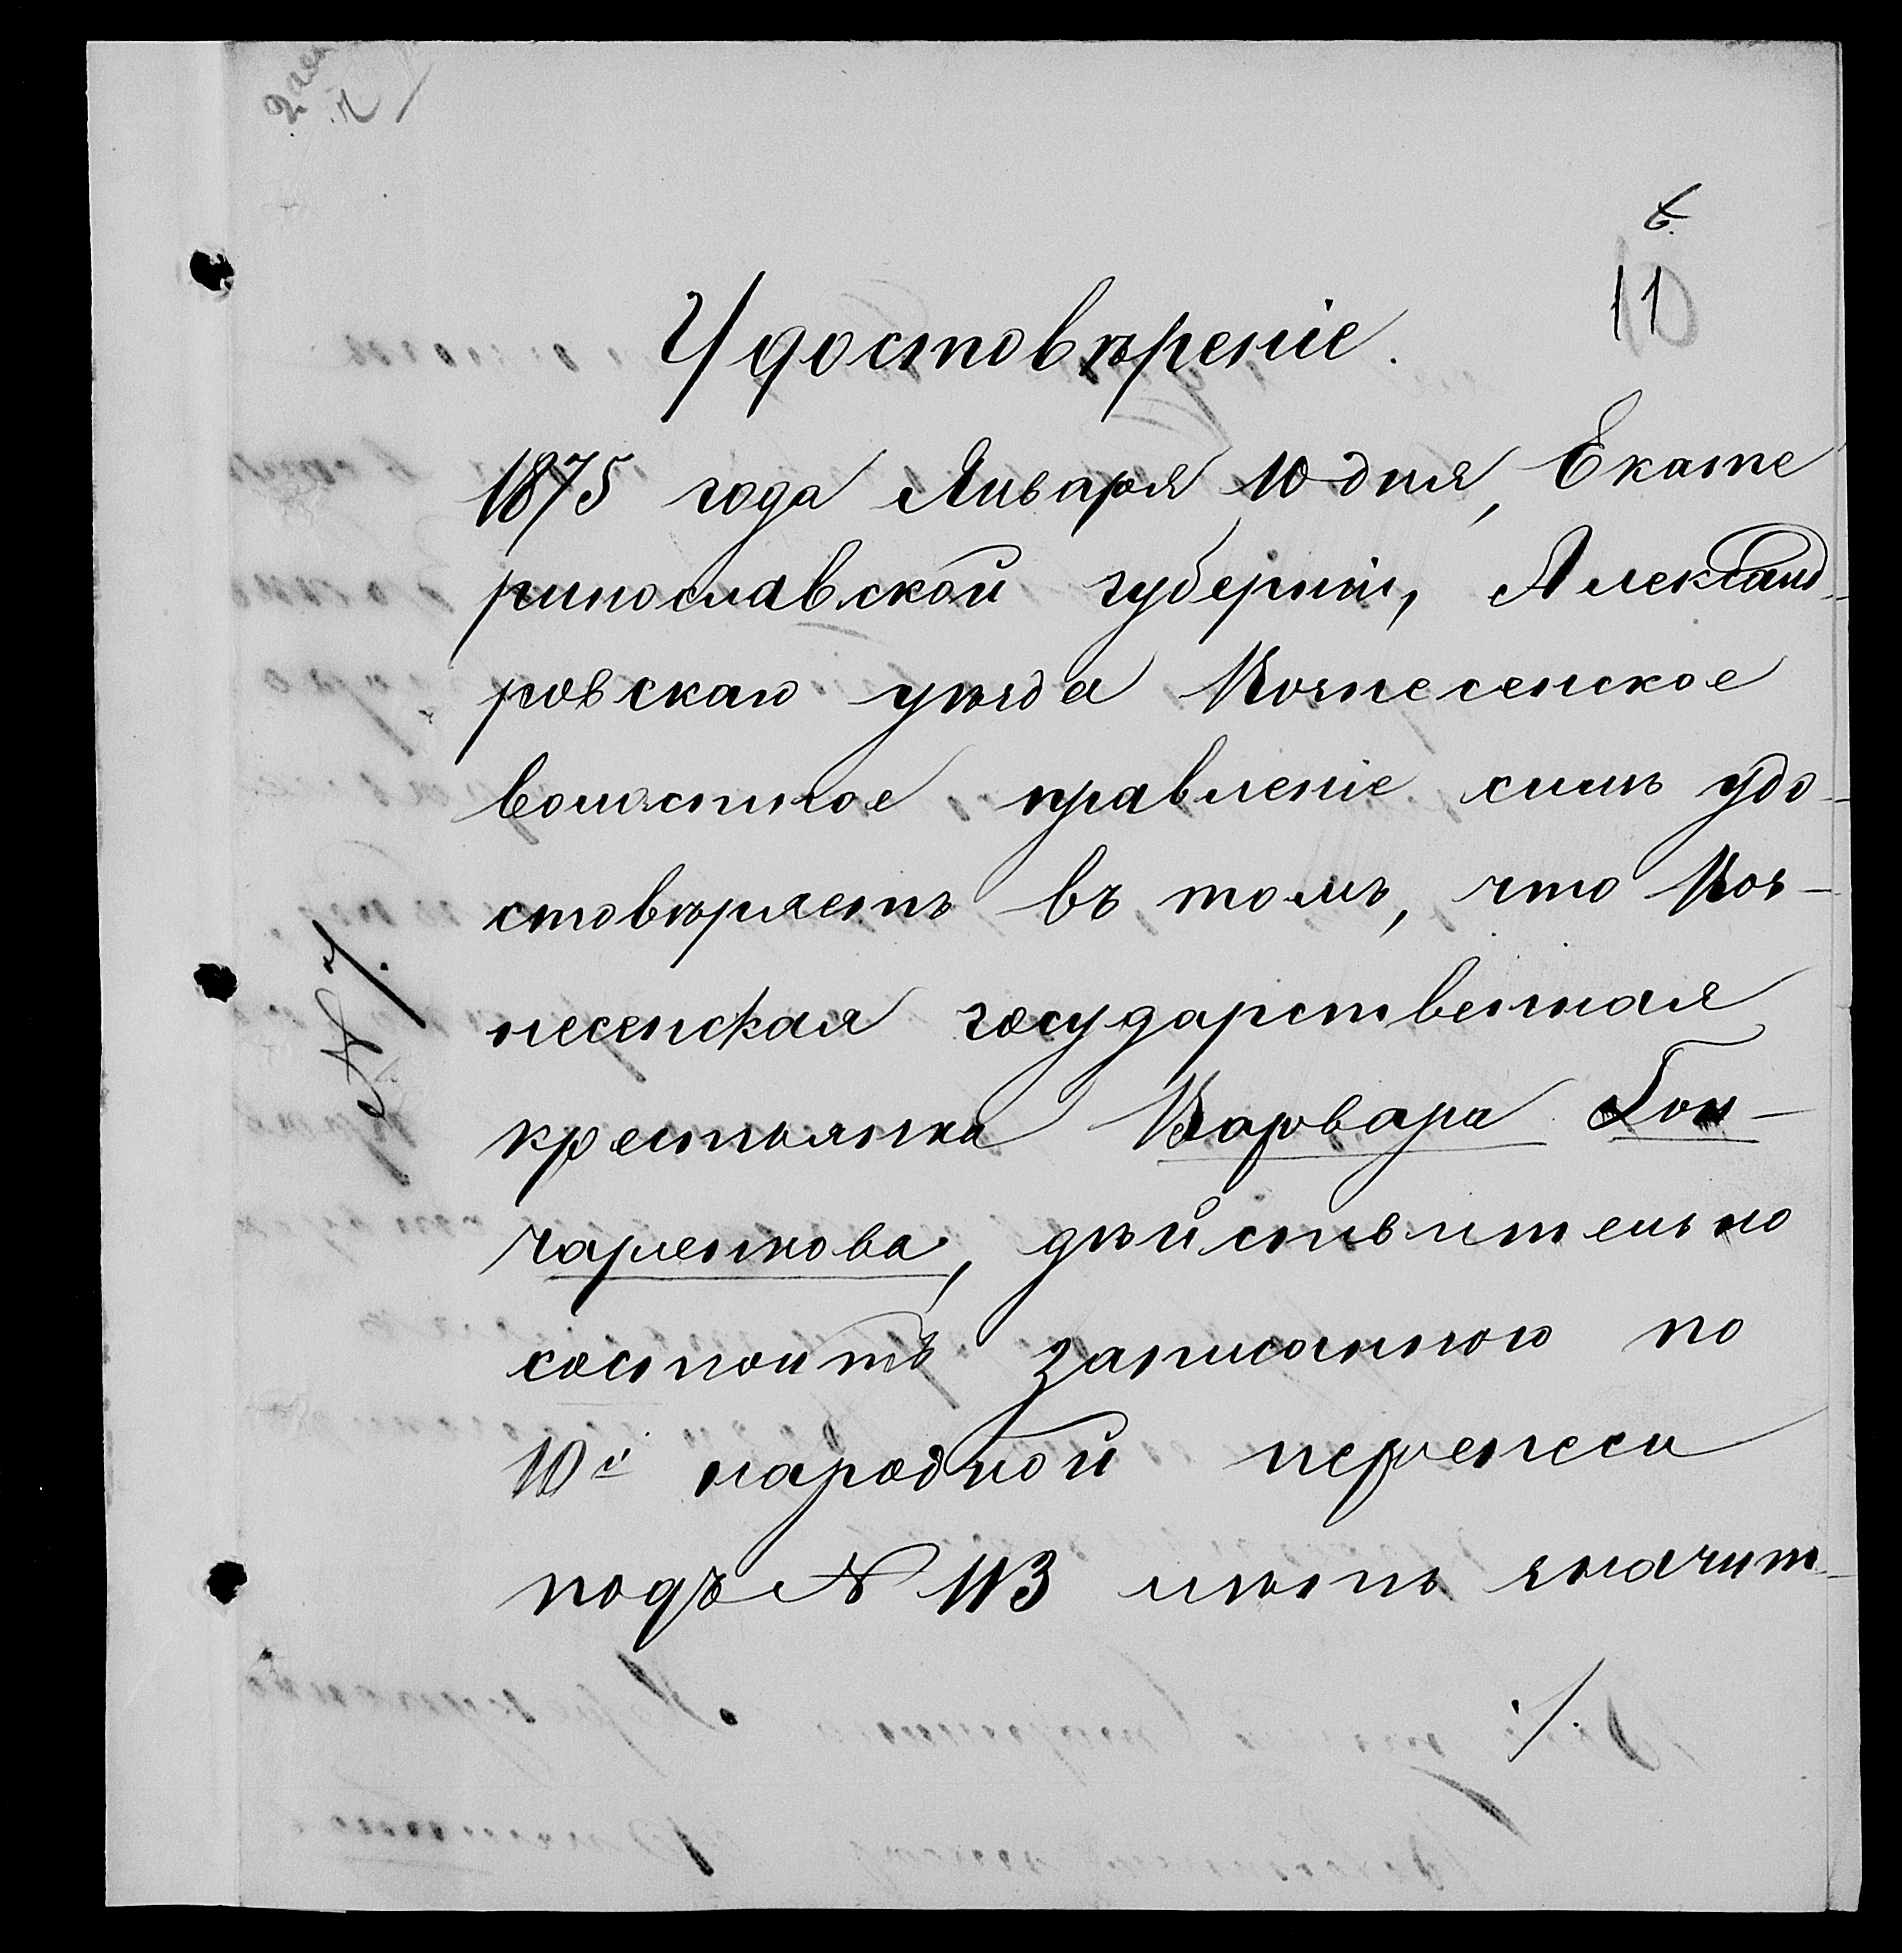 6.
11
Удостовѣреніе.
1875 года Января 10 дня, Екате
ринославской губерніи, Александ-
ровскаго уѣзда Вознесенское
волостное правленіе симъ удо-
стовѣряетъ въ томъ, что Воз-
несенская государственная
крестьянка Варвара Гон-
чаренкова, дѣйствительно
состоитъ записанною по
10й народной переписи
подъ № 113 лѣтъ значит-
./.
№ 7.